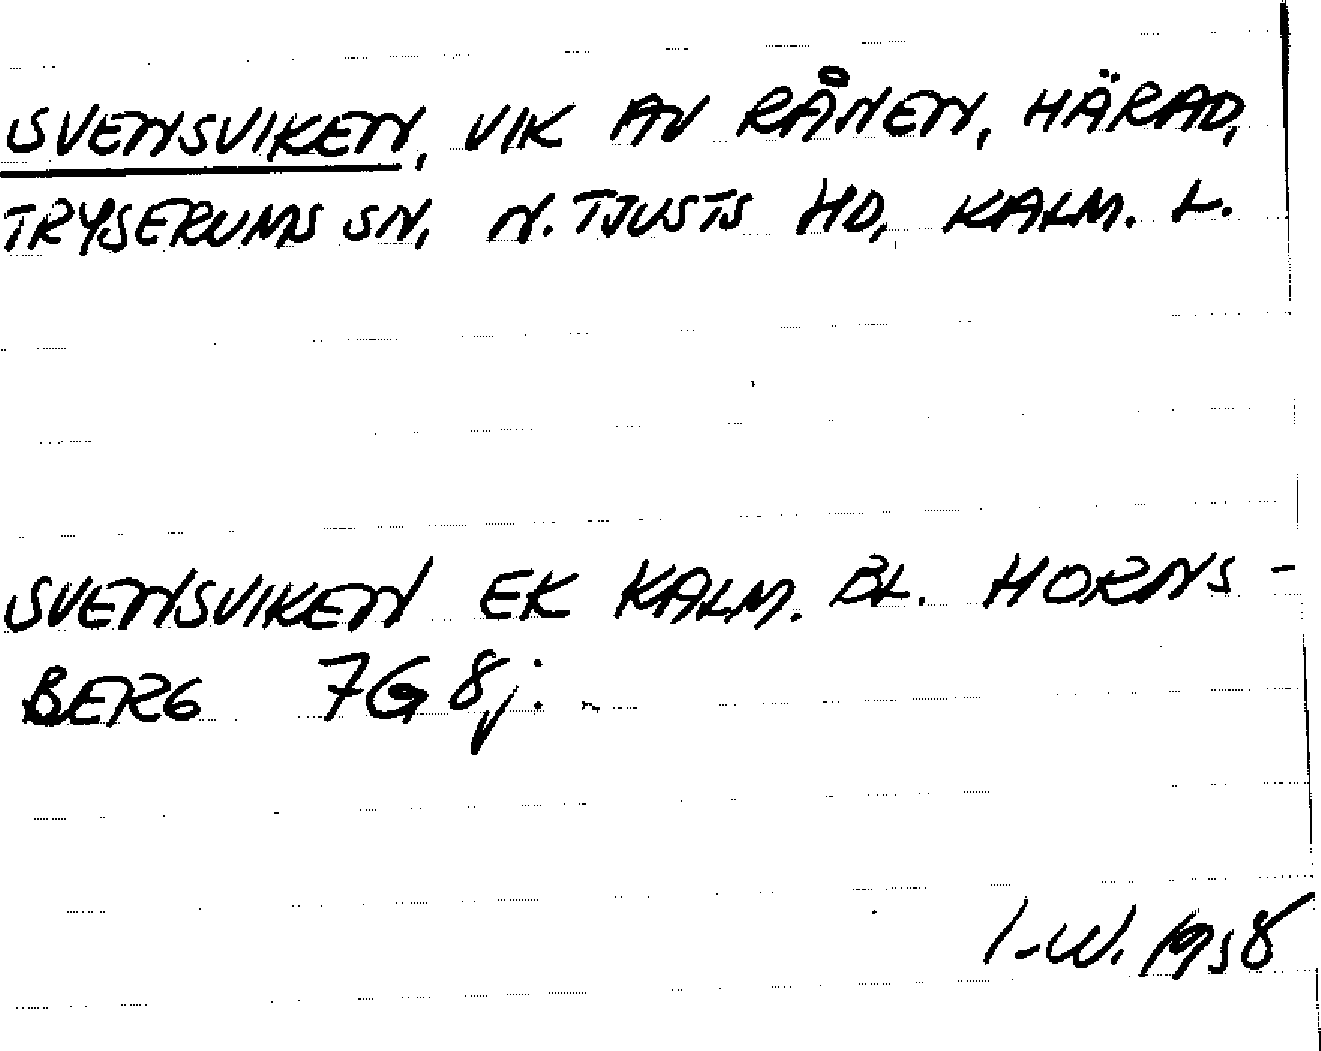 SVENSVIKEN, VIK AV RÅNEN, HÄRAD,
TRYSERUMS SN, N. TJUSTS HD, KALM. L.
SVENSVIKEN EK KALM. BL. HORNS-
BERG 7G 8j.
I-W. 1958